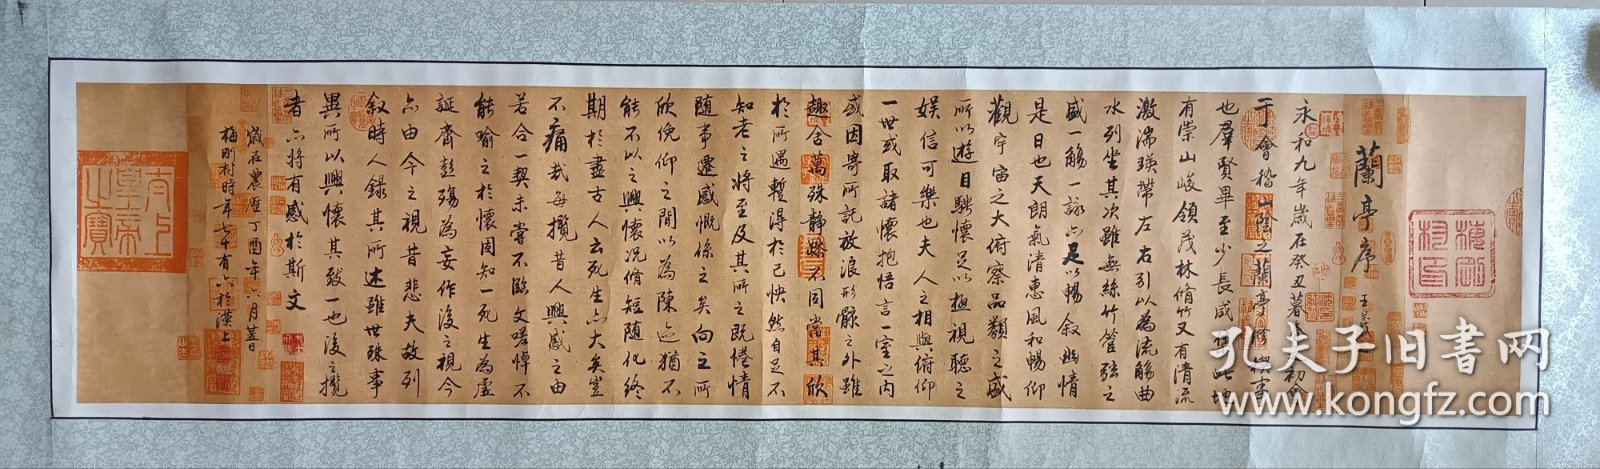 蘭亭序 王羲之
永和九年歲在癸丑暮春之初會
于會稽山陰之蘭亭脩禊事
也羣賢畢至少長咸集此地
有崇山峻領茂林脩竹又有清流
激湍瑛帶左右引以為流觴曲
水列坐其次雖無絲竹管弦之
盛一觴一詠亦足以暢叙幽情
是日也天朗氣清惠風和暢仰
觀宇宙之大俯察品類之盛
所以遊目騁懷足以極視聽之
娛信可樂也夫人之相與俯仰
一世或取諸懷抱悟言一室之內
或因寄所託放浪形骸之外雖
趣舍萬殊静躁不同當其欣
於所遇暫得於己快然自足不
知老之將至及其所之既惓情
隨事遷感慨係之矣向之所
欣俛仰之間以為陳迹猶不
能不以之興懷況脩短隨化終
期於盡古人云死生亦大矣豈
不痛哉每攬昔人興感之由
若合一契未嘗不臨文嗟悼不
能喻之於懷固知一死生為虛
誕齊彭殤為妄作後之視今
亦由今之視昔悲夫故列
叙時人錄其所述雖世殊事
異所以興懷其致一也後之攬
者亦將有感於斯文
歲在農曆丁酉年六月
梅剛村時年七十有六於漢上
太上皇帝之寶
梅剛村印
孔夫子旧書网
www.kongfz.com